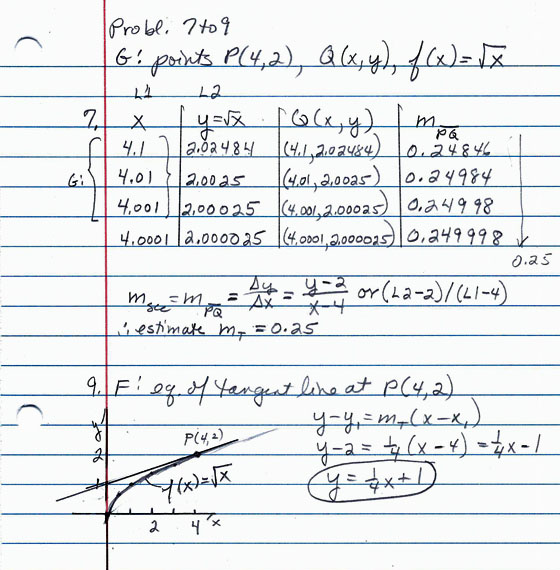 Probl. 7 to 9
G: points P(4,2), Q(x,y), f(x)=√x
L1 L2
7. x y=√x Q(x,y) m PQ
4.1 2.02484 (4.1,2.02484) 0.24846
G: 4.01 2.0025 (4.01,2.0025) 0.24984
4.001 2.00025 (4.001,2.00025) 0.24998
4.0001 2.000025 (4.0001,2.000025) 0.249998
0.25
m sec = m PQ = Δy/Δx = y-2/x-4 or (L2-2)/(L1-4)
∴ estimate m T = 0.25
9. F: eq. of tangent line at P(4,2)
y-y₁=m T (x-x₁)
y-2=¼(x-4)=¼x-1
y=¼x+1
y
P(4,2)
2
f(x)=√x
1
2 4 x